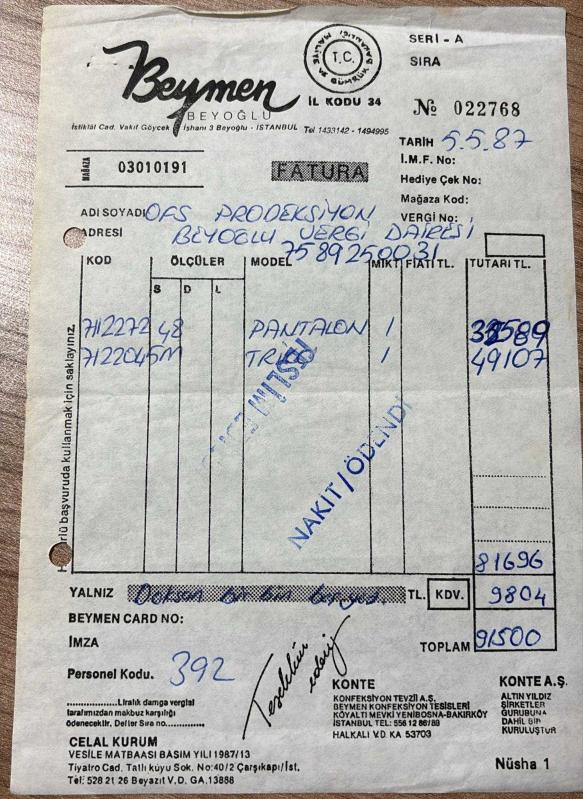 Beymen
BEYOĞLU
İL KODU 34
T.C.
MALİYE VE GÜMRÜK BAKANLIĞI
SERİ - A
SIRA
№ 022768
İstiklâl Cad. Vakıf Göycek İşhanı 3 Beyoğlu - İSTANBUL Tel 1433142 - 1494995
TARİH 5.5.87
MAĞAZA 03010191
FATURA
İ.M.F. No:
Hediye Çek No:
Mağaza Kod:
VERGİ No:
ADI SOYADI OFS PRODEKSİYON
ADRESİ BEYOĞLU VERGİ DAİRESİ
7589250031
KOD ÖLÇÜLER MODEL MİKT FİATI TL. TUTARI TL.
S D L
7112272 48 PANTALON 1
7122045 M 1 49107
NAKİT/ÖDENDİ
başvuruda kullanmak için saklayınız.
81696
YALNIZ Doksan bir bin beşyüz. TL. KDV. 9804
BEYMEN CARD NO:
İMZA
TOPLAM 91500
Personel Kodu. 392
Teslim ederiz
Liralık damga vergisi
tarafımızdan makbuz karşılığı
ödenecektir. Defter Sıra no
KONTE
KONFEKSİYON TEVZİİ A.Ş.
BEYMEN KONFEKSİYON TESİSLERİ
KÖYALTI MEVKİ YENİBOSNA-BAKIRKÖY
İSTANBUL TEL: 556 12 86/89
HALKALI V.D. KA 53703
KONTE A.Ş.
ALTIN YILDIZ
ŞİRKETLER
GURUBUNA
DAHİL BİR
KURULUŞTUR
CELAL KURUM
VESİLE MATBAASI BASIM YILI 1987/13
Tiyatro Cad. Tatlı kuyu Sok. No:40/2 Çarşıkapı/İst.
Tel: 528 21 26 Beyazıt V.D. GA.13888
Nüsha 1